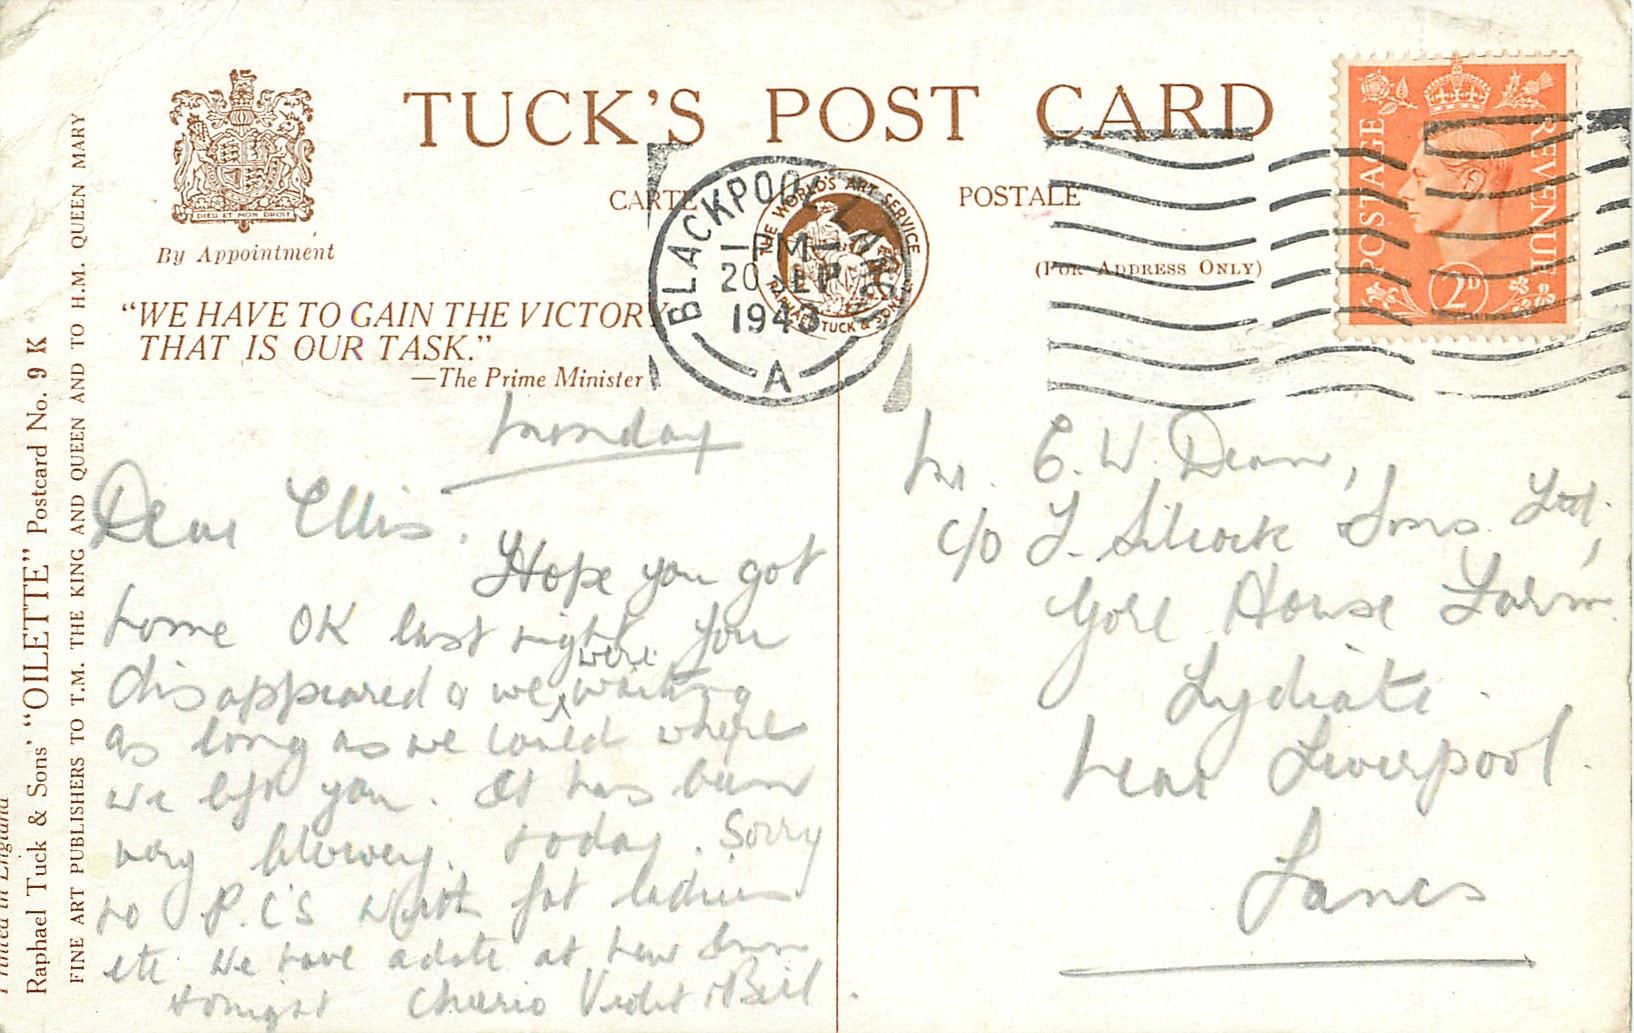 TUCK'S POST CARD
CARTE POSTALE
(FOR ADDRESS ONLY)
DIEU ET MON DROIT
By Appointment
"WE HAVE TO GAIN THE VICTORY
THAT IS OUR TASK."
—The Prime Minister
BLACKPOOL LANCS
PM
20 SEP
A
THE WORLD'S ART SERVICE
RAPHAEL TUCK & SONS
POSTAGE REVENUE
2D
Printed in England
Raphael Tuck & Sons' "OILETTE" Postcard No. 9 K
FINE ART PUBLISHERS TO T.M. THE KING AND QUEEN AND TO H.M. QUEEN MARY
Monday
Dear Ellis.
Hope you got
home OK last night. You
disappeared & we were waiting
as long as we could where
we left you. It has been
very blowey. today. Sorry
no P.C's with fat ladies
etc. We have a date at New Inn
tonight Cheerio Violet & Bill.
Mr. E. W. Dean,
c/o J. Silcock Sons Ltd,
Gore House Farm
Lydiate.
Near Liverpool.
Lancs